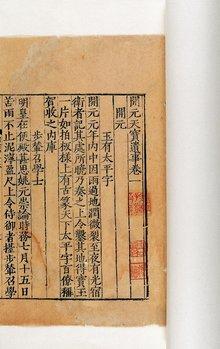 開元天寶遺事卷一
開元
玉有太平字
開元元年內中因雨過地潤微裂至夜有光宿
衛者記其處所曉乃奏之上令鑿其地得寶玉
一片如拍板樣上有古篆天下太平字百僚稱
賀收之內庫
步輦召學士
明皇在便殿甚思姚元崇論時務七月十五日
苦雨不止泥濘盈尺上令侍御者擡步輦召學